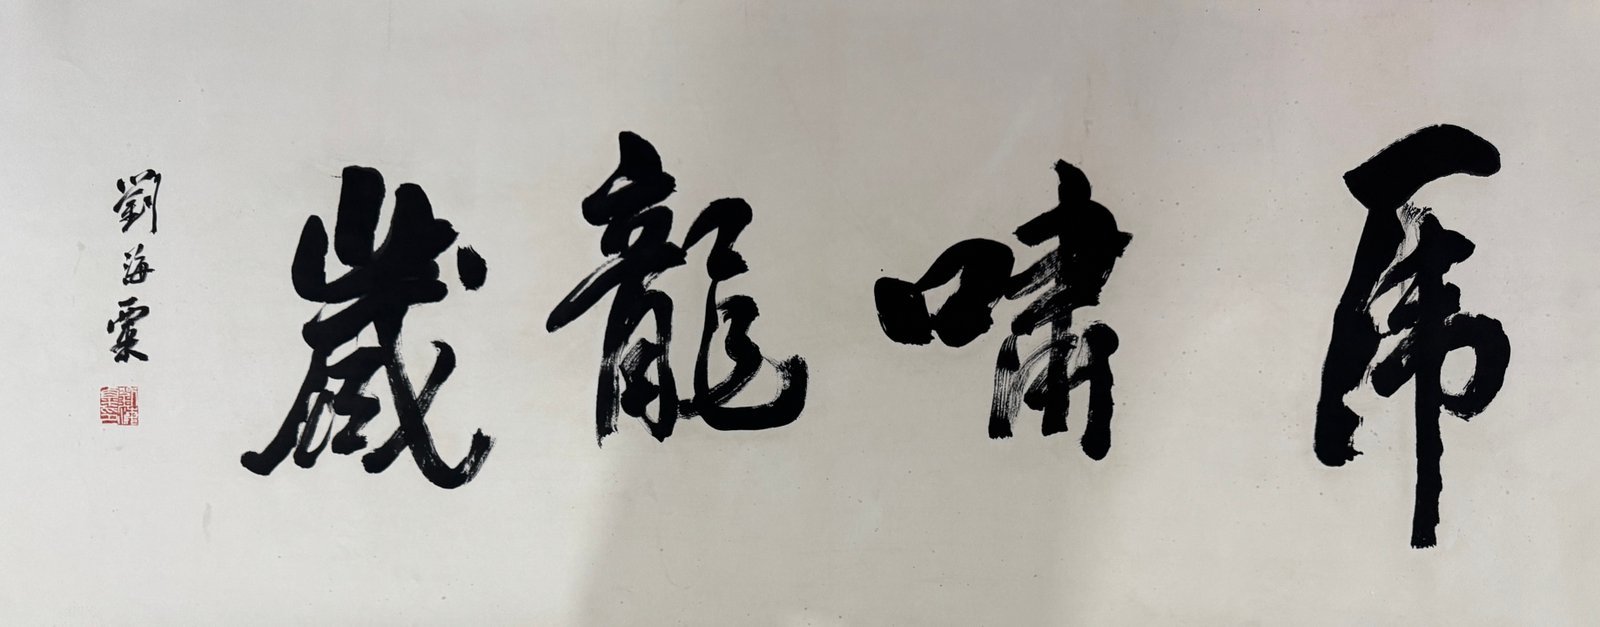 虎嘯龍藏
劉海粟